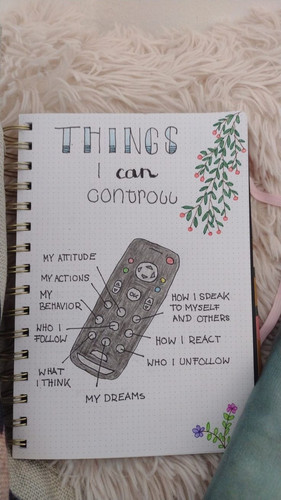 THINGS
I can
CONTROLL
MY ATTITUDE
MY ACTIONS
MY
BEHAVIOR
WHO I
FOLLOW
WHAT
I THINK
MY DREAMS
HOW I SPEAK
TO MYSELF
AND OTHERS
HOW I REACT
WHO I UNFOLLOW